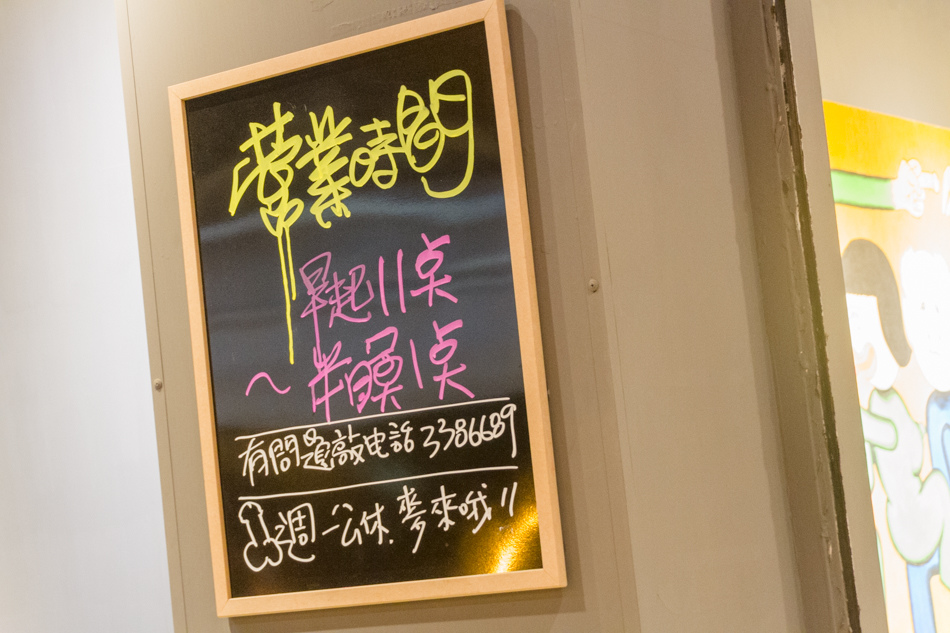 營業時間
早起11点
~半暝1点
有問題敲电話 3386689
週一公休.麥來哦!!